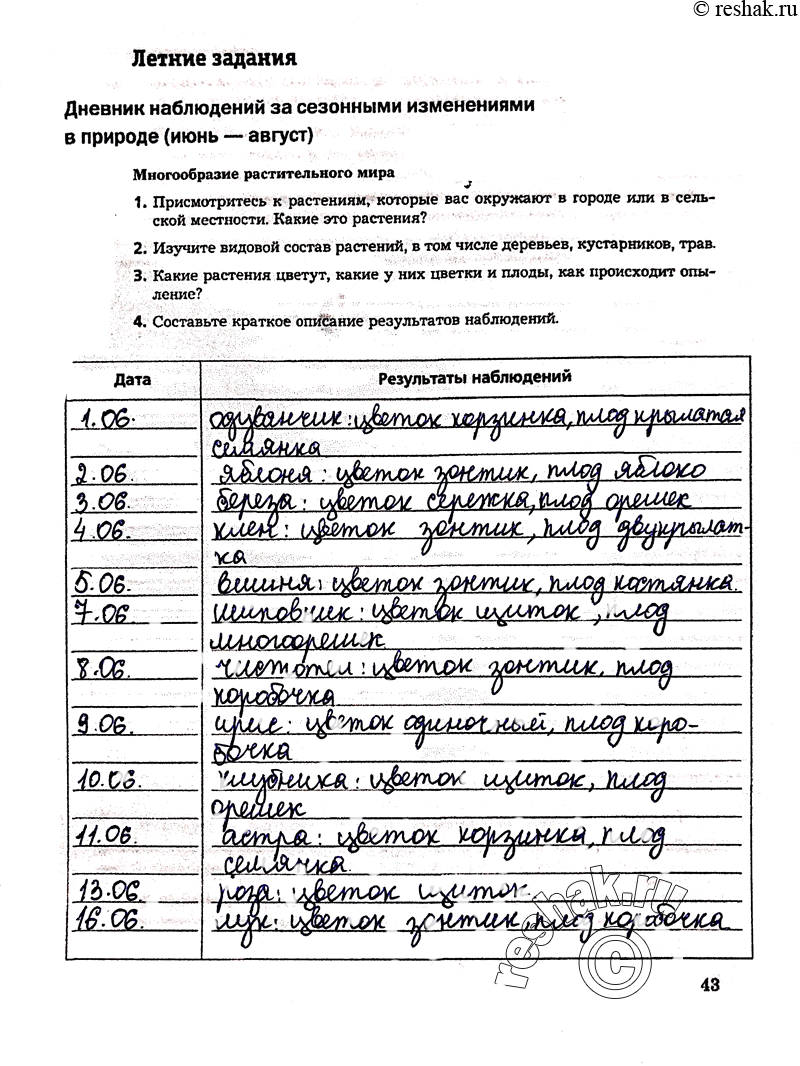 © reshak.ru
Летние задания
Дневник наблюдений за сезонными изменениями
в природе (июнь — август)
Многообразие растительного мира
1. Присмотритесь к растениям, которые вас окружают в городе или в сель-
ской местности. Какие это растения?
2. Изучите видовой состав растений, в том числе деревьев, кустарников, трав.
3. Какие растения цветут, какие у них цветки и плоды, как происходит опы-
ление?
4. Составьте краткое описание результатов наблюдений.
Дата Результаты наблюдений
1.06. одуванчик: цветок корзинка, плод крылатая
семянка
2.06. яблоня: цветок зонтик, плод яблоко
3.06. береза: цветок сережка, плод орешек
4.06. клен: цветок зонтик, плод двукрылат-
ка
5.06. вишня: цветок зонтик, плод костянка.
7.06 шиповник: цветок щиток, плод
многоорешек
8.06. чистотел: цветок зонтик, плод
коробочка
9.06. ирис: цветок одиночный, плод коро-
бочка
10.06. клубника: цветок щиток, плод
орешек
11.06. астра: цветок корзинка, плод
семячка.
13.06. роза: цветок щиток.
16.06. лук: цветок зонтик, плод коробочка
reshak.ru
©
43